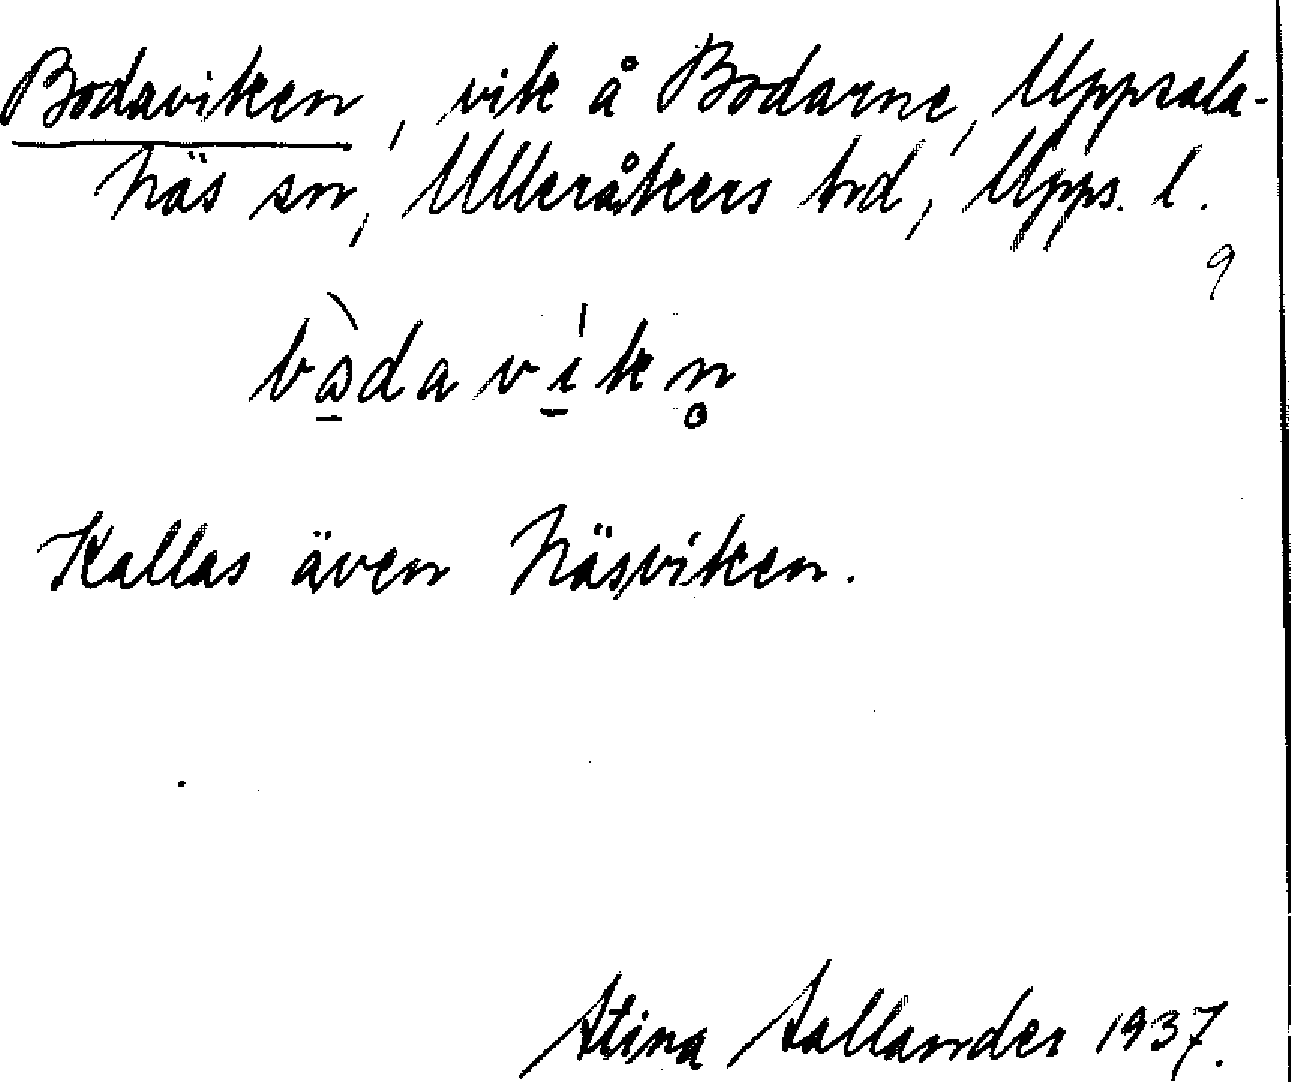 Bodaviken, vik å Bodarne, Uppsala-
Näs sn, Ulleråkers hd, Upps. l.
9
bὰdavíkn̥
Kallas även Näsviken.
Stina Sallander 1937.